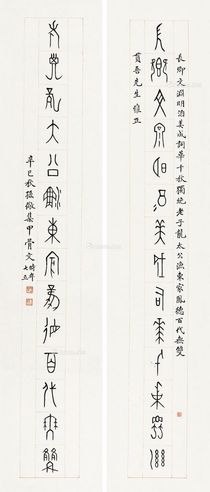 長卿文淵明酒美成詞華千秋獨絕老子龍太公漁東家鳳德百代無雙
長卿文淵明酒美成詞華千秋獨絕
貫吾先生雅正
老子龍大公漁東家鳳德百代無雙
辛巳秋孫儆集甲骨文時年
七五